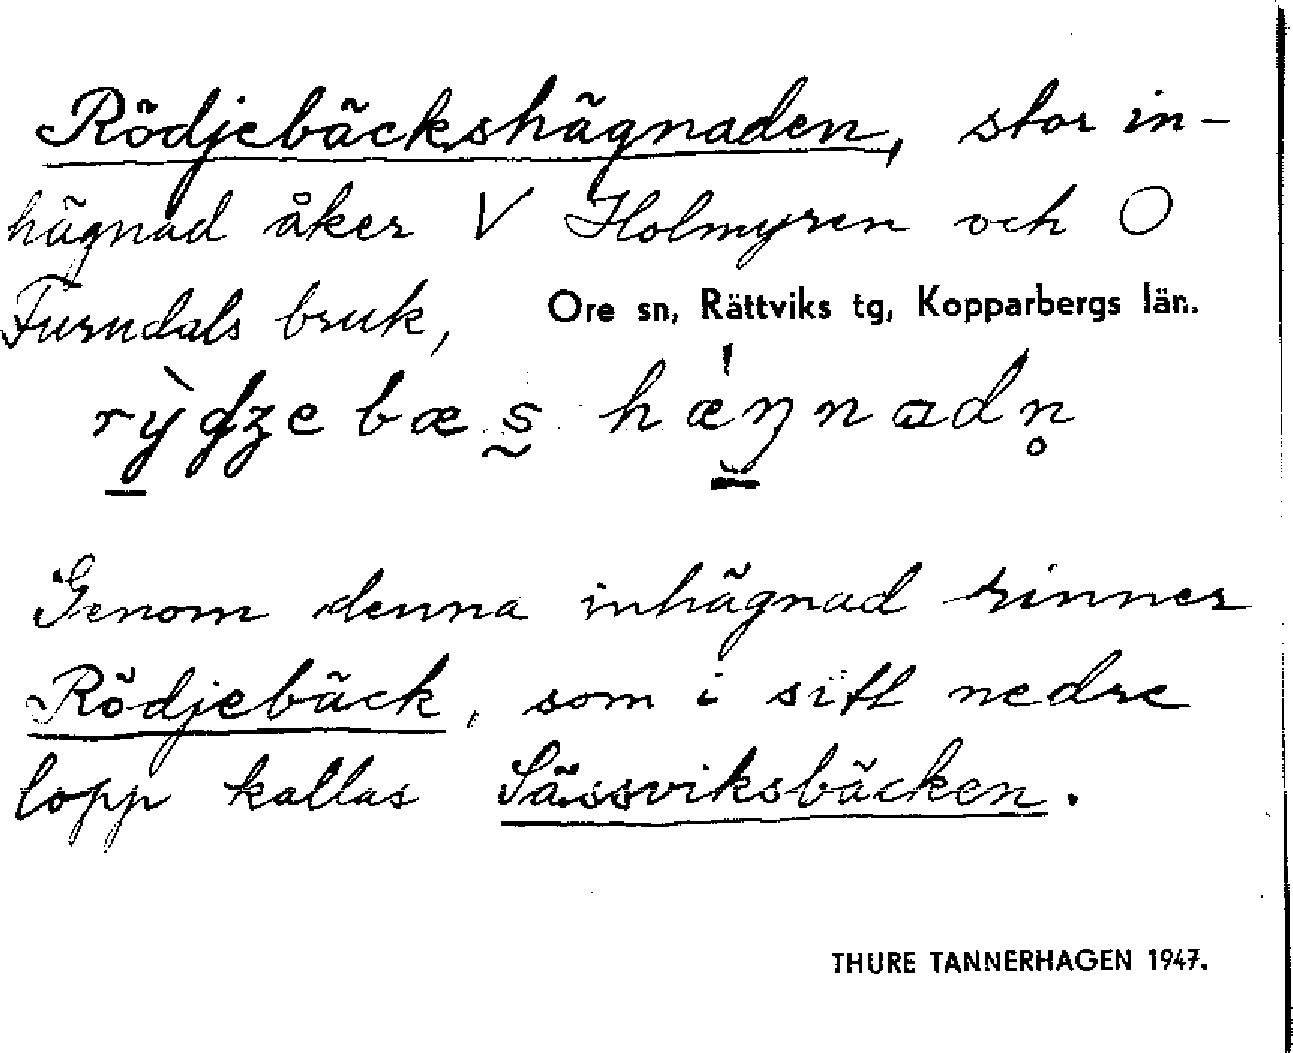 Rödjebäckshägnaden, stor in-
hägnad åker V Holmyren och O
Furudals bruk, Ore sn, Rättviks tg, Kopparbergs län.
rỳdʒebæ s̰ hǽŋnadn̥
Genom denna inhägnad rinner
Rödjebäck, som i sitt nedre
lopp kallas Sässviksbäcken.
THURE TANNERHAGEN 1947.